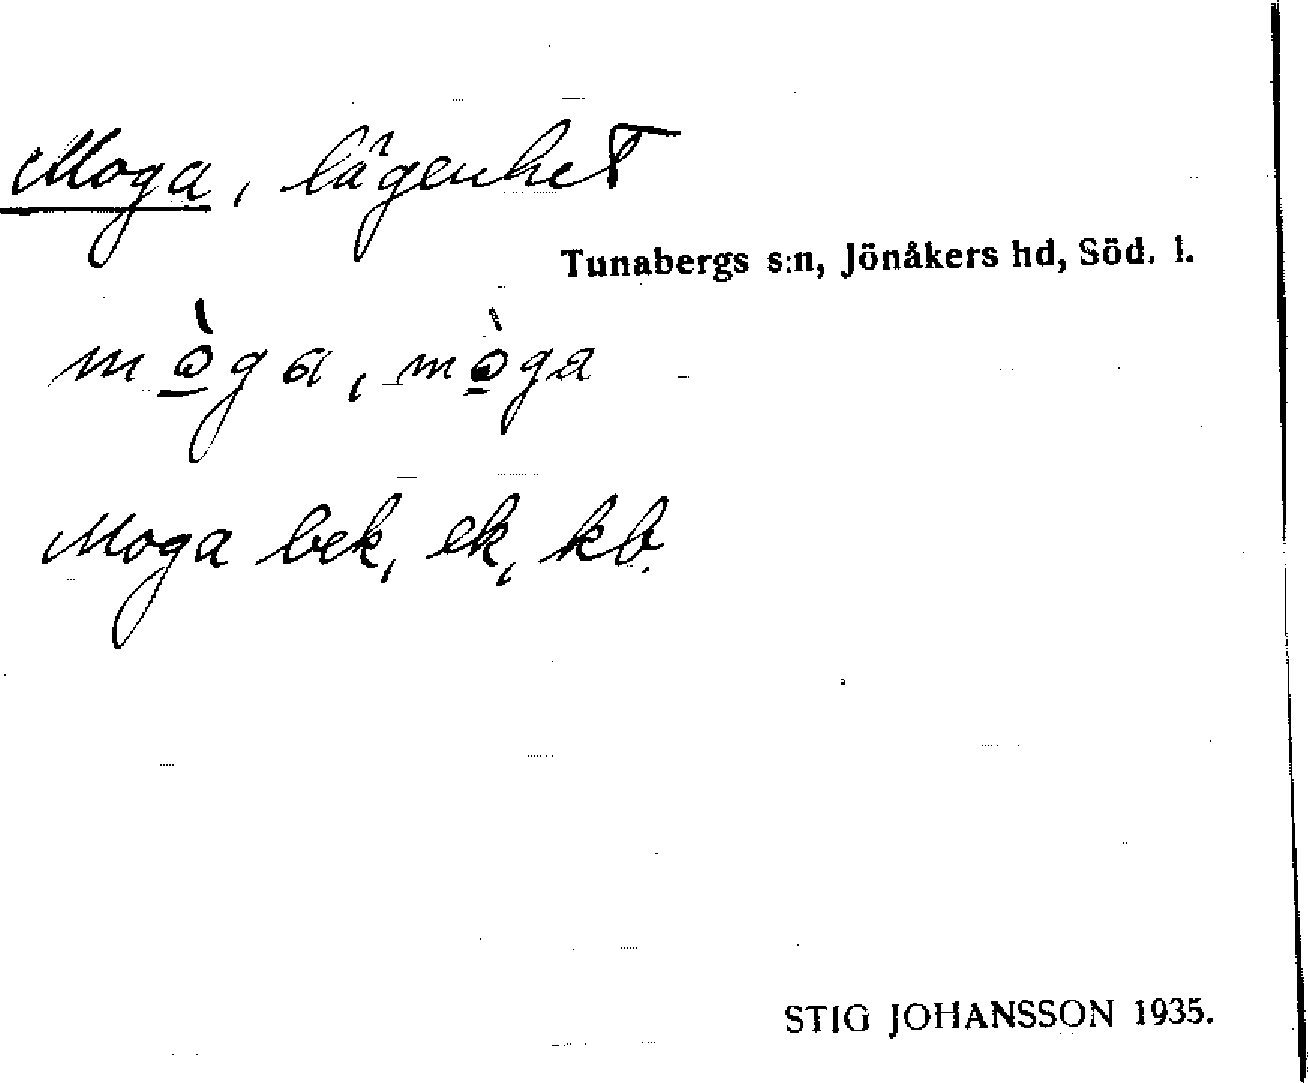 Moga, lägenhet
Tunabergs s:n, Jönåkers hd, Söd. l.
mò̲ga, mò̲ga
Moga bek, ek, kb.
STIG JOHANSSON 1935.